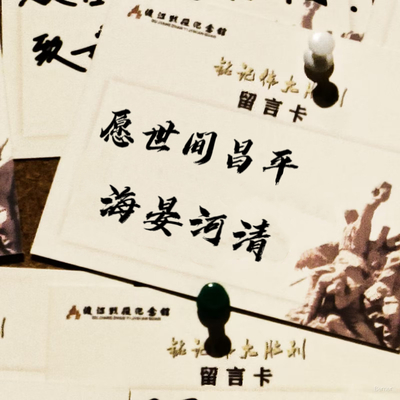 渡江战役纪念馆
铭记伟大胜利
留言卡
愿世间昌平
海晏河清
渡江战役纪念馆
铭记伟大胜利
留言卡